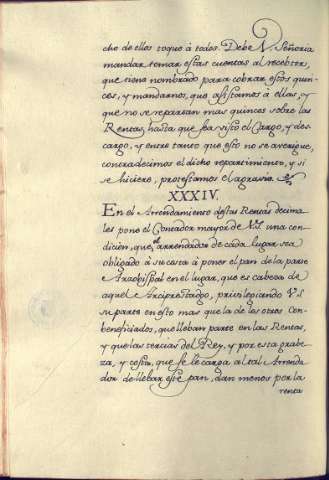 cho de ellos toque à todos. Debe V. Señoria
mandar tomar estas cuentas al recebtor,
que tiene nombrado para cobrar estos quin-
ces, y mandarnos, que assistamos à ellas, y
que no se repartan mas quinces sobre las
Rentas, hasta que sea visto el Cargo, y des-
cargo, y entre tanto que esto no se averigue,
contradecimos el dicho repartimiento, y si
se hiciere, protestamos el agravio.
XXXIV.
En el Arrendamiento destas Rentas decima-
les pone el Contador mayor de V.S. una con-
dicion, que el arrendador de cada lugar sea
obligado à su costa à poner el pan de la parte
Arzobispal en el lugar, que es cabeza de
aquel Arciprestadgo, privilegiando V.S.
su parte en esto mas que la de los otros con-
beneficiados, que lleban parte en las Rentas,
y que las tercias del Rey, y por esta grabe-
za, y costa, que se le carga al tal Arrenda-
dor de llebar este pan, dan menos por la
renta